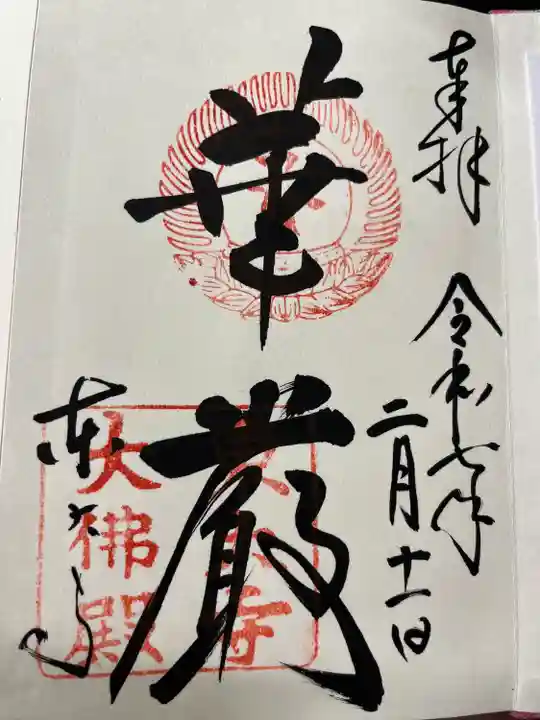 奉拝
令和七年
二月十一日
華厳
東大寺
東大寺
大佛殿